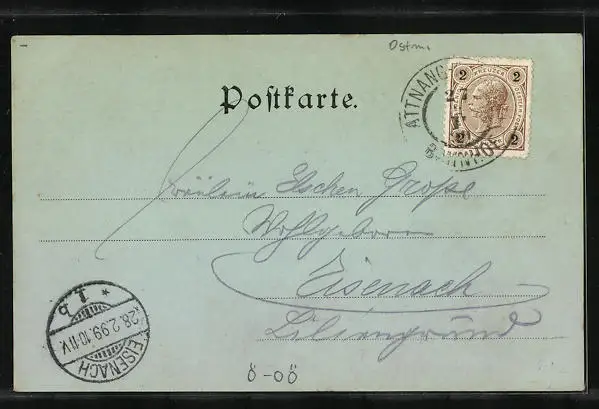 Ostm.
Postkarte.
ATTNANG
BAHNHOF
2 KREUZER 2
2 2
Fräulein Elschen Große
Wohlgeboren
Eisenach
Liliengrund
EISENACH
28.2.99.10-11V.
* 1 b
ö-oö